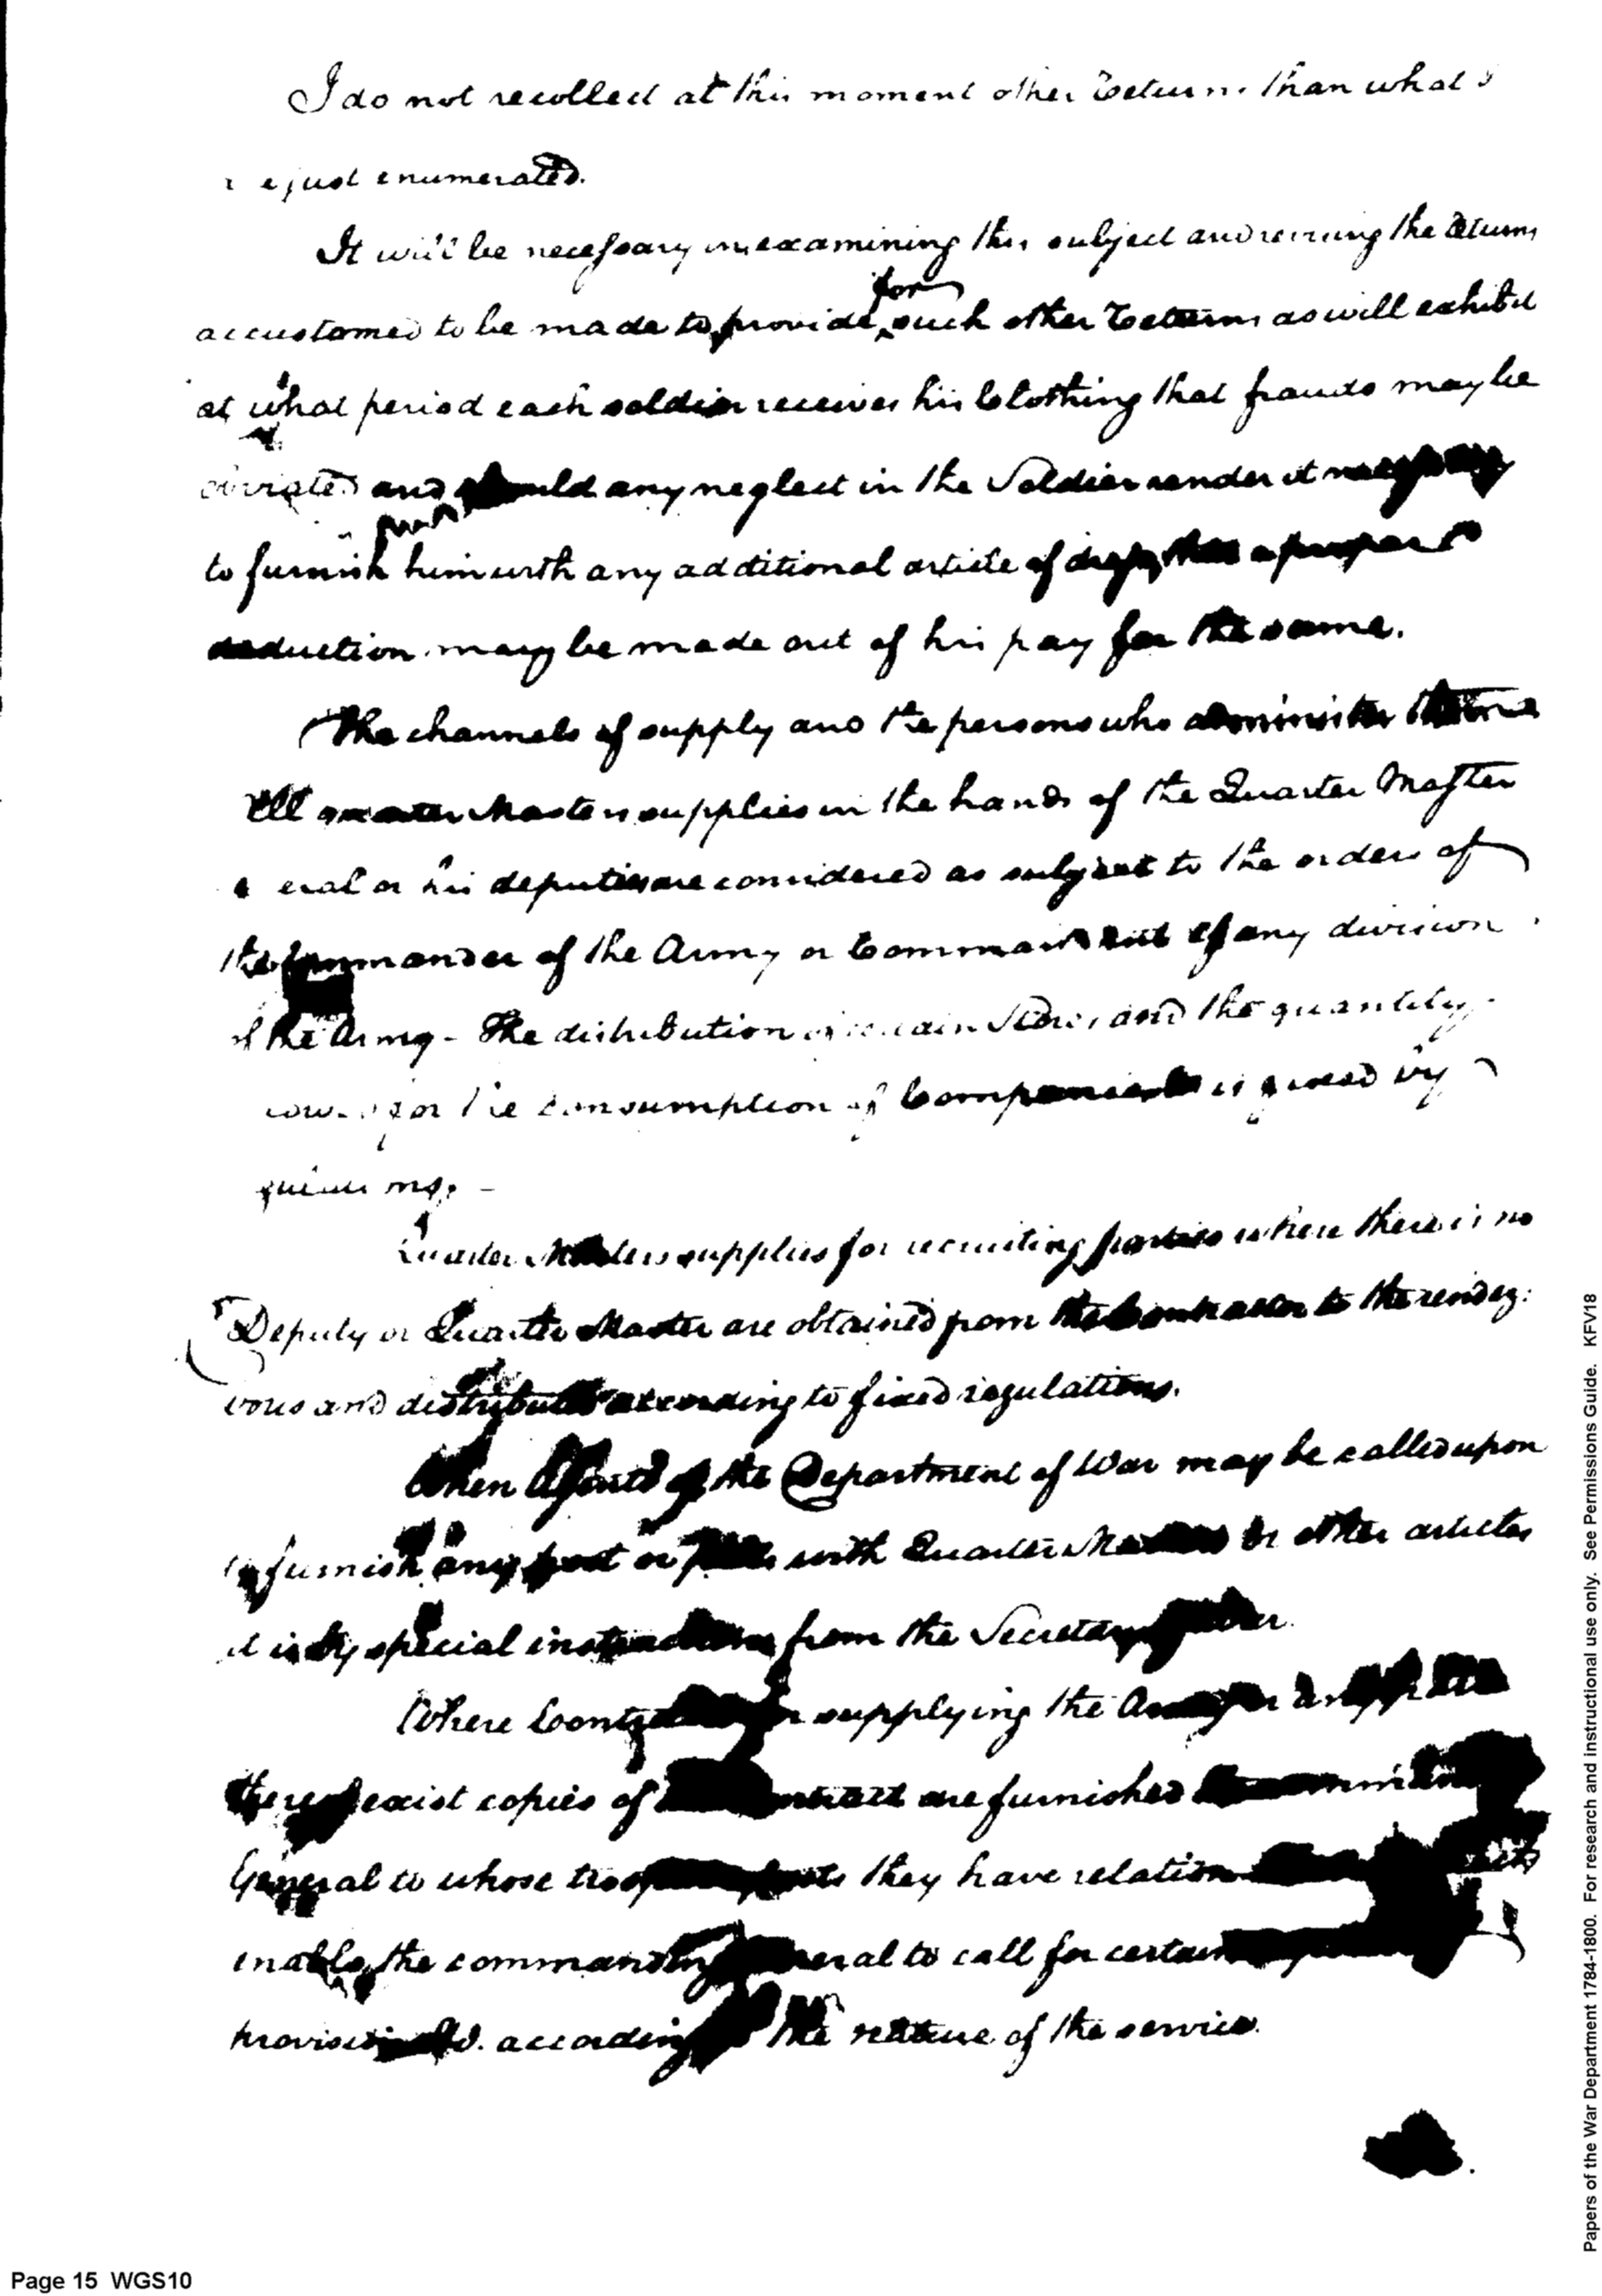 I do not recollect at this moment other Returns than what I
just enumerated.
It will be necessary in examining this subject and revising the Returns
for
accustomed to be made to provide such other Returns as will exhibit
at what period each soldier receives his Clothing that frauds may be
obviated and should any neglect in the Soldier render it necessary
to furnish him with any additional article of dress, that a proper
deduction may be made out of his pay for the same.
The channels of supply and the persons who administer
All Quarter Masters supplies in the hands of the Quarter Master
eral or his deputies are considered as subject to the orders of
the Commander of the Army or Commandant of any division
of the Army - The distribution of certain Stores and the quantity
for the consumption of Companies is fixed by

Quarter Masters supplies for recruiting parties where there is no
Deputy or Quarter Master are obtained from the Contractor to the rendez:
vous and distributed according to fixed regulations.
When Agents of the Department of War may be called upon
to furnish any post or with Quarter Masters or other articles
it is by special instructions from the Secretary of War.
Where Contracts for supplying the Army or any part
thereof exist copies of contract are furnished
General to whose troops or posts they have relation
enable the commanding General to call for certain
provisions &c. according to the nature of the service.
Page 15 WGS10
Papers of the War Department 1784-1800. For research and instructional use only. See Permissions Guide. KFV18